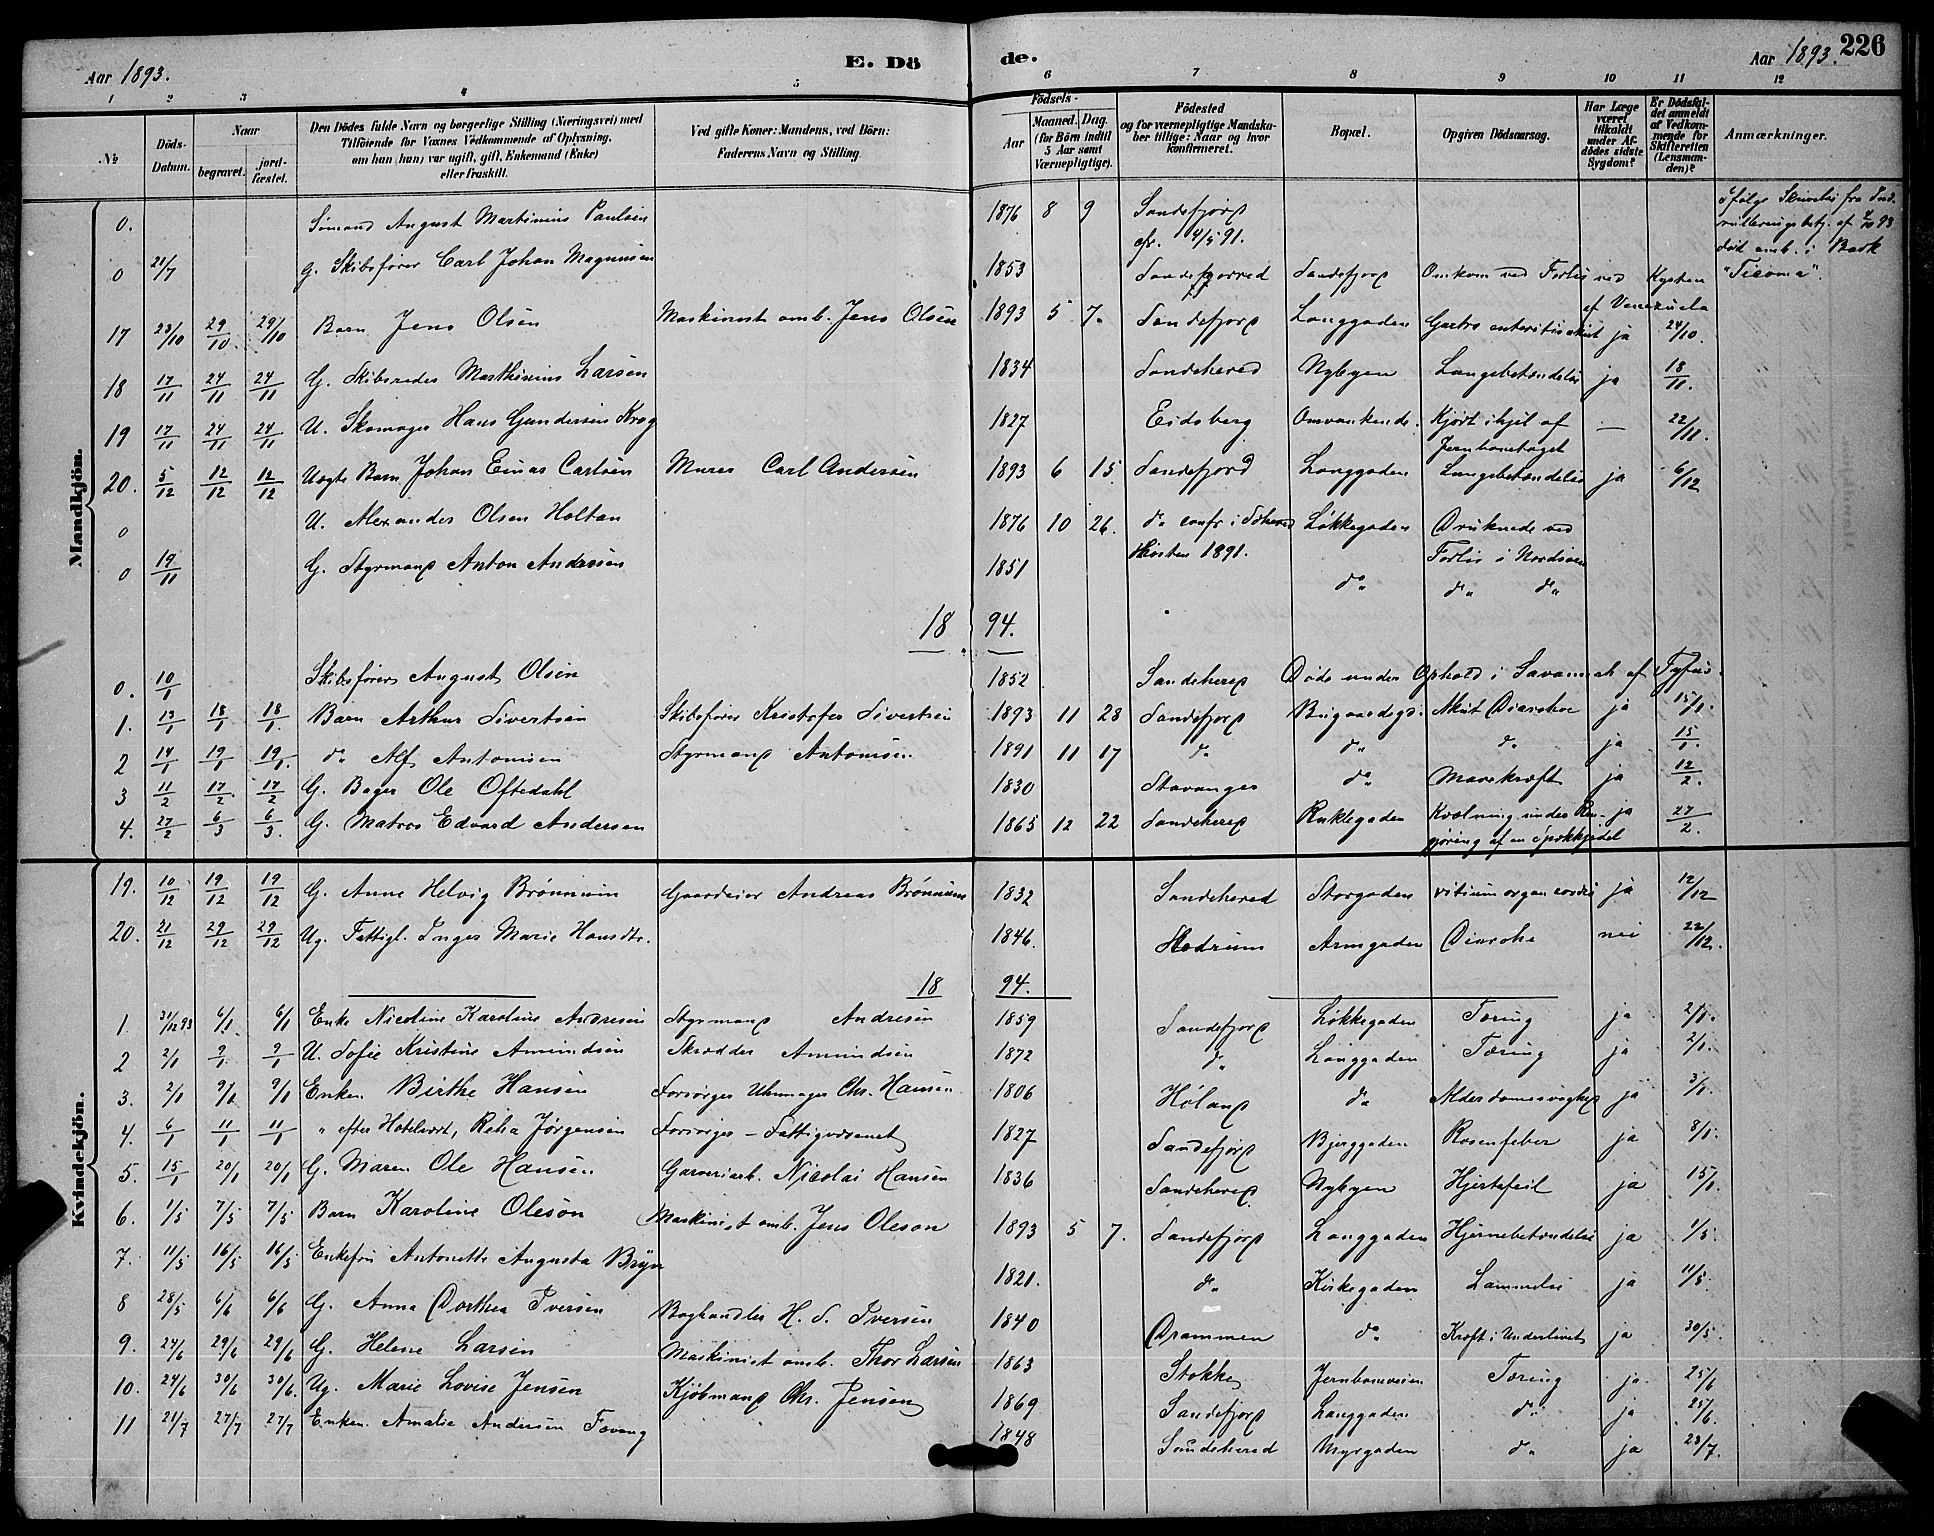 Aar 1893. E. Dö de. Aar 1893. 226
1 2 3 4 5 6 7 8 9 10 11 12
№ Döds-Datum. Naar begravet. jord-fæstet. Den Dödes fulde Navn og borgerlige Stilling (Næringsvei) med Tilföiende for Voxnes Vedkommende af Oplysning, om han (hun) var ugift, gift, Enkemand (Enke) eller fraskilt. Ved gifte Koner: Mandens, ved Börn: Faderens Navn og Stilling. Födsels- Aar Maaned. Dag. (for Börn indtil 5 Aar samt Værnepligtige). Födested og for værnepligtige Mandskaber tillige: Naar og hvor konfirmeret. Bopæl. Opgiven Dödsaarsag. Har Læge været tilkaldt under Afdödes sidste Sygdom? Er Dödsfaldet anmeldt af Vedkommende for Skifteretten (Lensmanden)? Anmærkninger.
Mandkjön.
0. Sömand August Martinius Paulsen 1876 8 9 Sandefjord cfr. 4/5 91. Ifølge Skrivelse fra Indrulleringsbetj. af 7/10 93 død omb. i Bark "Ticoma".
0 21/7 g. Skibsfører Carl Johan Magnusen 1853 Sandefjorred Sandefjord Omkom ved Forlis ved Kysten af Venezuela
17 23/10 29/10 29/10 Barn Jens Olsen Maskinist omb. Jens Olsen 1893 5 7. Sandefjord Langgaden Gastro enteritis akut ja 24/10.
18 17/11 24/11 24/11 G. Skibsreder Marthinius Larsen 1834 Sandeherred Nybyen Lungebetændelse ja 18/11.
19 17/11 24/11 24/11 U. Skomager Hans Gundersen Krog 1827 Eidsberg Omvankende. Kjørt ihjel af Jernbanetoget — 22/11.
20. 5/12 12/12 12/12 Uægte Barn Johan Einar Carlsen Murer Carl Andersen 1893 6 15. Sandefjord Langgaden Lungebetændelse ja 6/12
0 U. Alexander Olsen Holtan 1876 10 26. do confr i Sdherred Høsten 1891. Løkkegaden Druknede ved Forlis i Nordsøen
0 19/11 G. Styrmand Anton Andersen 1851 do do do
18 94.
0. 10/1 Skibsfører August Olsen 1852 Sandeherred Døde under Ophold i Savannah af Tyfus.
1. 13/1 18/1 18/1. Barn Arthur Sivertsen Skibsfører Kristofer Sivertsen 1893 11 28 Sandefjord Bugaardsgd. Akut Diarrhoe ja 15/1.
2 14/1 19/1 19/1. do Alf Antonisen Styrmand Antonisen 1891 11 17 do do do ja 15/1.
3 11/2 17/2. 17/2 G. Bager Ole Oftedahl 1830 Stavanger do Mavekræft ja 12/2.
4. 27/2 6/3 6/3. G. Matros Edvard Andersen 1865 12 22 Sandeherred Ruklegaden Kvælning under Rengjøring af en Spækkjedel ja 27/2.
Kvindekjön.
19. 10/12 19/12 19/12 G. Anne Helvig Brønnum Gaardeier Andreas Brønnum 1832 Sandeherred Storgaden vitium organ cordis ja 12/12
20. 21/12 29/12 29/12 Ug. Fattigl. Inger Marie Hansdtr. 1846. Hedrum Armgaden Diarrohe nei 22/12.
18 94.
1. 31/12 93 6/1 6/1 Enke Nicoline Karoline Andresen Styrmand Andresen 1859 Sandefjord Løkkegaden Tæring ja 2/1.
2 2/1 9/1 9/1 U. Sofie Kristine Amundsen Skrædder Amundsen 1872 do Langgaden Tæring ja 2/1.
3. 2/1 9/1 9/1 Enken Birthe Hansen Forsørger Uhrmager Chr. Hansen 1806 Høland do Alderdomssvaghed ja 3/1.
4. 6/1 11/1 11/1 " efter Hotelvært, Relia Jørgensen Forsørger - Fattigvæsenet 1827 Sandefjord Bjerggaden Rosenfeber ja 8/1.
5. 15/1 20/1 20/1 G. Maren Ole Hansen Garveriarb. Nicolai Hansen 1836 Sandeherred Nybyen Hjertefeil ja 15/1.
6. 1/5 7/5 7/5 Barn Karoline Oleson Maskinist omb. Jens Oleson 1893 5 7. Sandefjord Langgaden Hjernebetændelse ja 1/5.
7. 11/5 16/5 16/5 Enkefru Antonette Augusta Bryn 1821. do Kirkegaden Lammelse ja 11/5.
8 28/5 6/6 6/6 G. Anna Dorthea Iversen Boghandler H. S. Iversen 1840 Drammen do Kræft i Underlivet ja 30/5.
9. 24/6 29/6 29/6 G. Helene Larsen Maskinist omb. Thor Larsen 1863 Stokke Jernbaneveien Tæring ja 25/6
10. 24/6 30/6 30/6. Ug. Marie Lovise Jensen Kjøbmand Chr. Jensen 1869 Sandefjord Langgaden do ja 25/6.
11 21/7 27/7 27/7 Enken Amalie Andersen Fevang 1848 Sandeherred Myrgaden do ja 23/7.